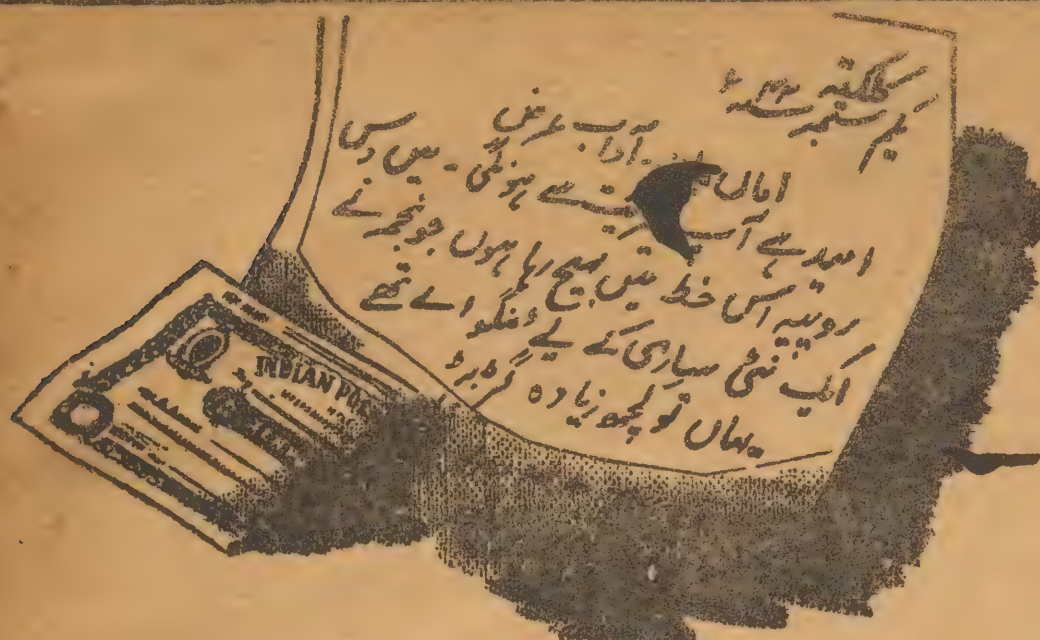 کلکتہ
یکم ستمبر سنہ ۴۲ء
اماں آداب عرض
امید ہے آپ سے ہونگی۔ میں دس
روپیہ اس خط میں بھیج رہا ہوں جو نجمہ نے
ایک نئی ساری کے لیے منگوائے تھے
یہاں تو کچھ زیادہ گڑبڑ
INDIAN